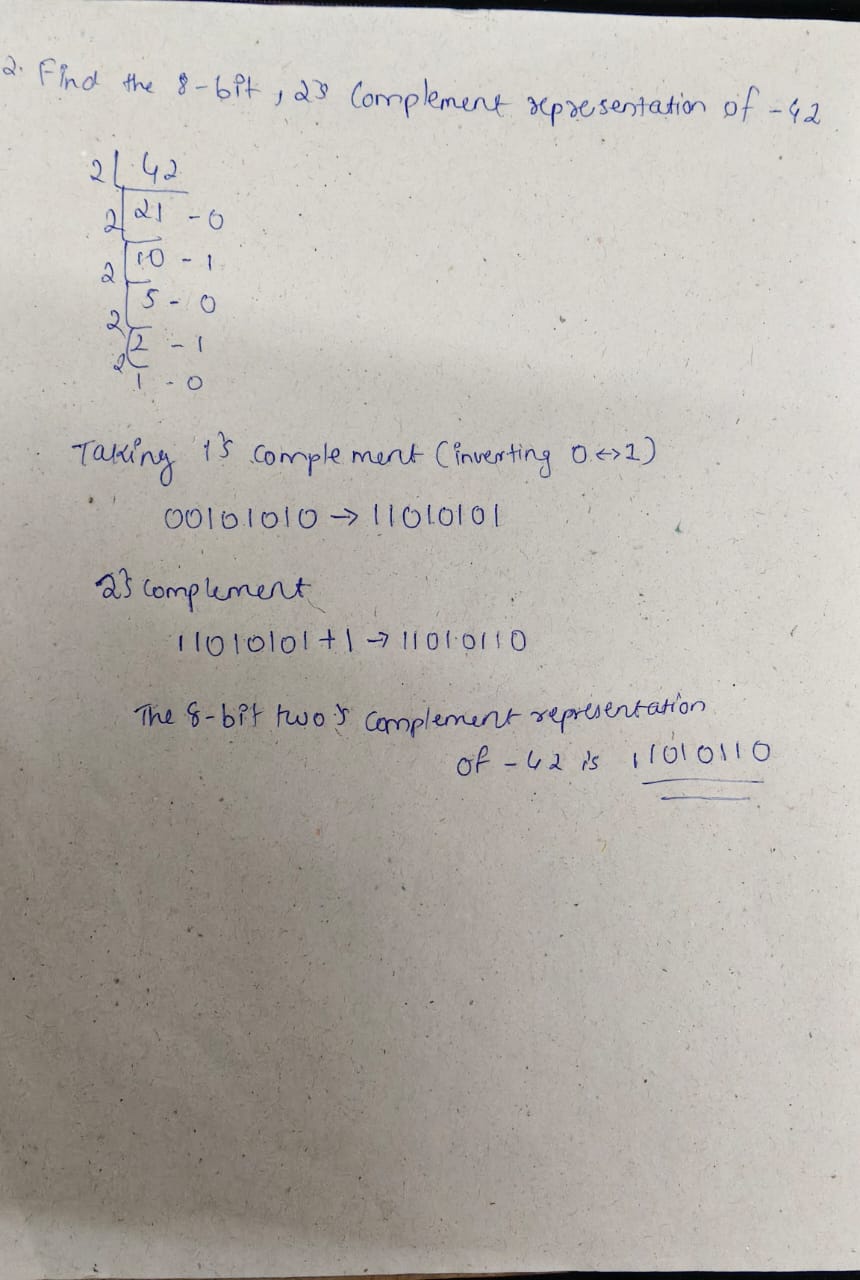 2. Find the 8-bit, 2's Complement representation of -42
2 42
2 21 - 0
2 10 - 1
2 5 - 0
2 2 - 1
1 - 0
Taking 1's complement (inverting 0↔1)
00101010 → 11010101
2's complement
11010101+1 → 11010110
The 8-bit two's complement representation
of -42 is 11010110